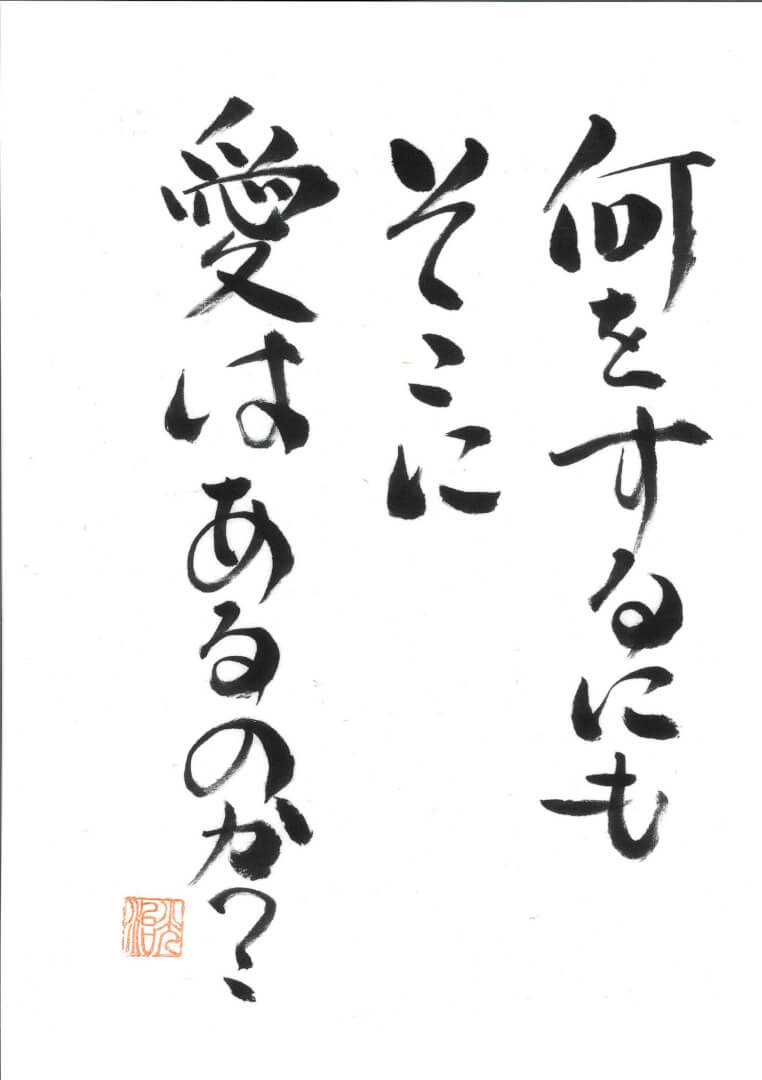 何をするにも
そこに
愛はあるのか？